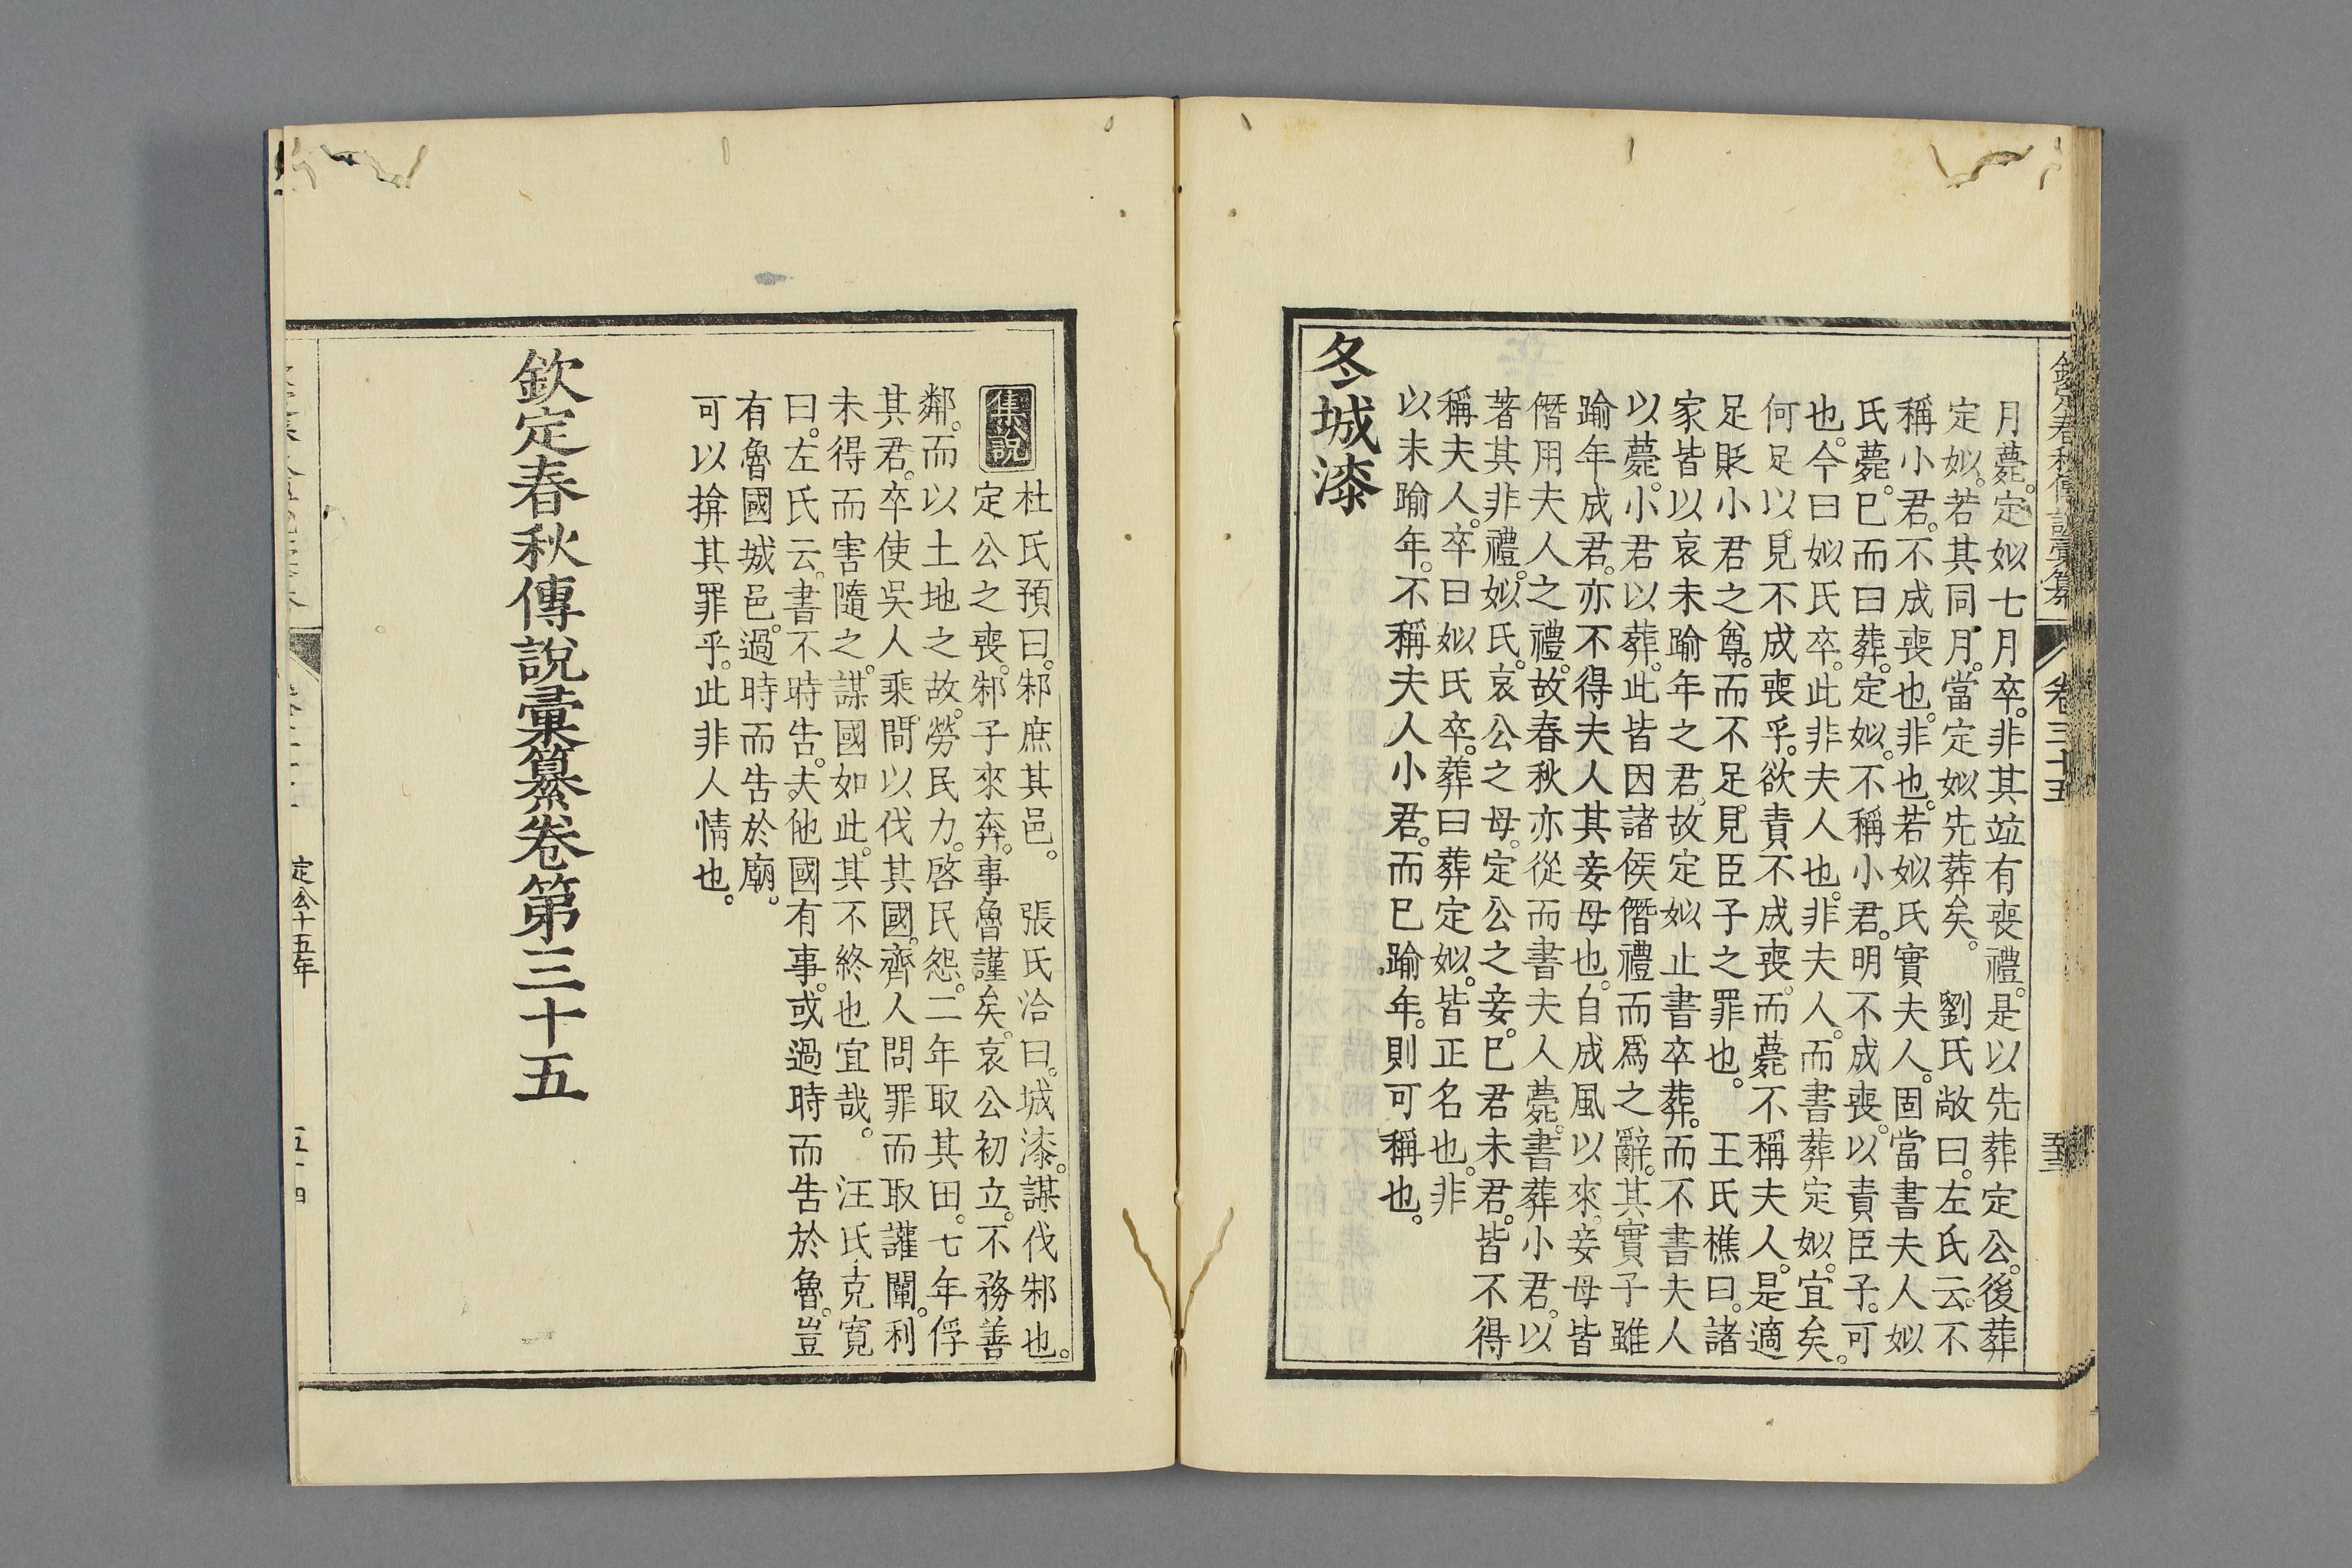 欽定春秋傳說彙纂 卷三十五
月薨。定姒七月卒。非其竝有喪禮。是以先葬定公。後葬
定姒。若其同月。當定姒先葬矣。 劉氏敞曰。左氏云。不
稱小君。不成喪也。非也。若姒氏實夫人。固當書夫人姒
氏薨。已而曰葬。定姒。不稱小君。明不成喪。以責臣子。可
也。今曰姒氏卒。此非夫人也。非夫人。而書葬定姒。宜矣。
何足以。見不成喪乎。欲責不成喪。而薨不稱夫人。是適
足貶小君之尊。而不足。見臣子之罪也。 王氏樵曰。諸
家皆以哀未踰年之君。故定姒止書卒葬。而不書夫人
以薨。小君以葬。此皆因諸侯僭禮而爲之辭。其實子雖
踰年成君。亦不得夫人其妾母也。自成風以來。妾母皆
僭用夫人之禮。故春秋亦從而書夫人薨。書葬小君。以
著其非禮。姒氏。哀公之母。定公之妾。已君未君。皆不得
稱夫人。卒曰姒氏卒。葬曰葬定姒。皆正名也。非
以未踰年。不稱夫人小君。而已踰年。則可稱也。
冬城漆
集說
杜氏預曰。邾庶其邑。 張氏洽曰。城漆。謀伐邾也。
定公之喪。邾子來奔。事魯謹矣。哀公初立。不務善
鄰。而以土地之故。勞民力。啓民怨。二年取其田。七年俘
其君。卒使吳人乘間。以伐其國。齊人問罪而取讙闡。利
未得而害隨之。謀國如此。其不終也宜哉。 汪氏克寬
曰。左氏云。書不時告。夫他國有事。或過時而告於魯。豈
有魯國城邑。過時而告於廟。
可以揜其罪乎。此非人情也。
欽定春秋傳說彙纂卷第三十五
定公十五年